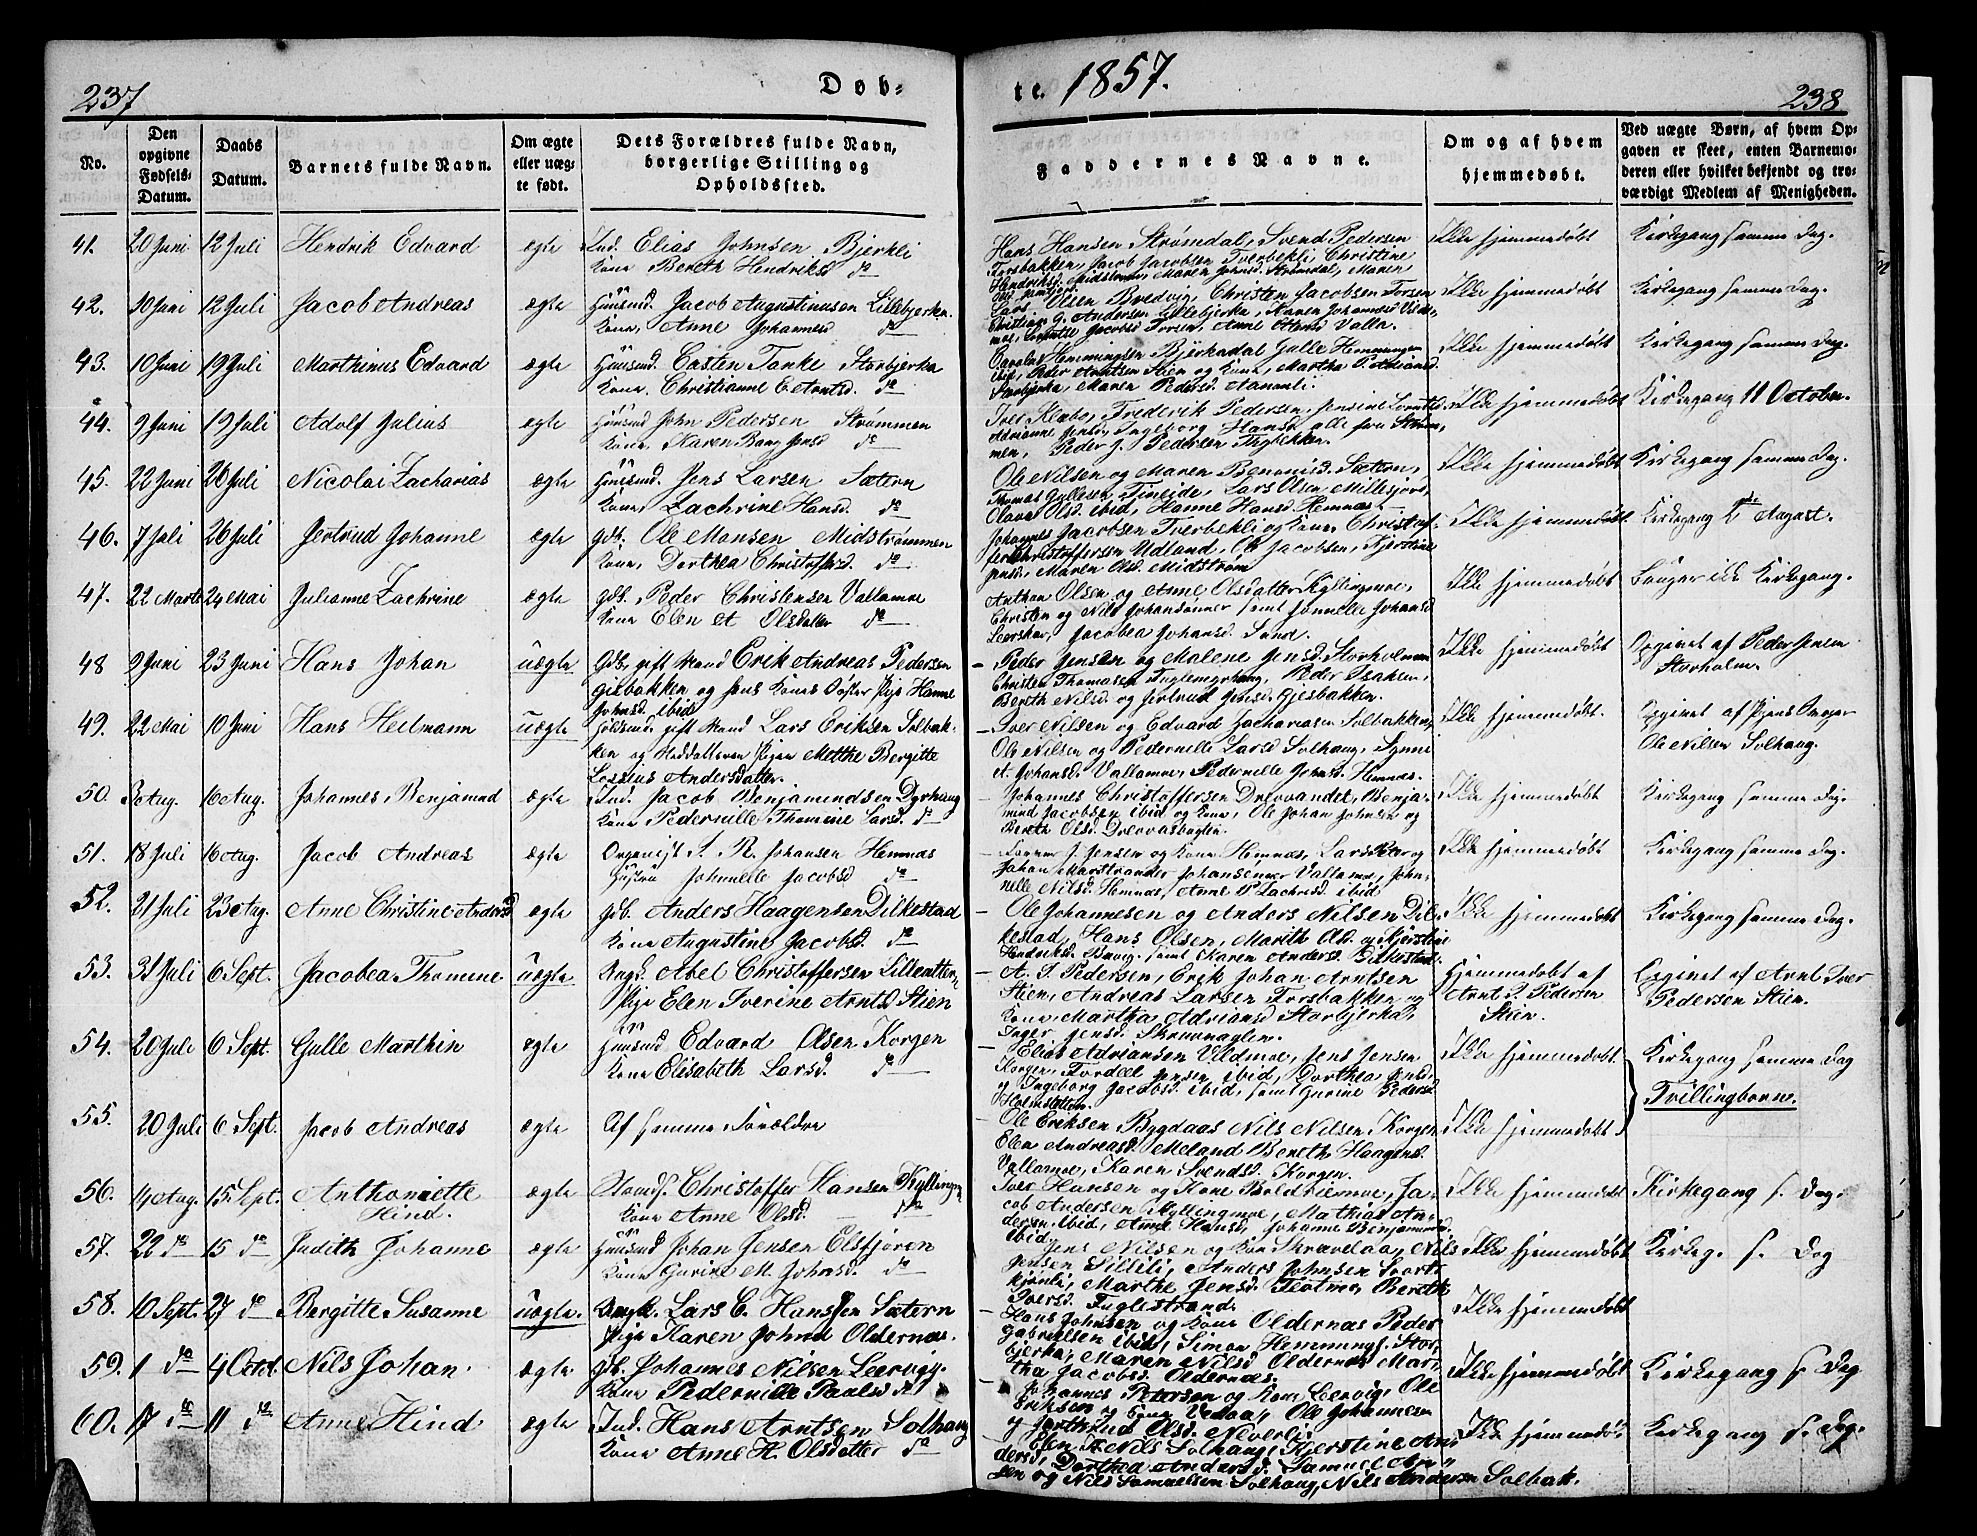 237
Døb-
te. 1857.
238
No.
Den opgivne Fødsels-Datum.
Daabs Datum.
Barnets fulde Navn.
Om ægte eller uæg-te født.
Dets Forældres fulde Navn, borgerlige Stilling og Opholdssted.
Faddernes Navne.
Om og af hvem hjemmedøbt.
Ved uægte Børn, af hvem Op-gaven er skeet, enten Barnemo-deren eller hvilket bekjendt og tro-værdigt Medlem af Menigheden.
41. 20 Juni 12 Juli Hendrik Edvard ægte Ind. Elias Johnsen Bjerkli
Kone Bereth Hendriksd do
Hans Hansen Strømdal, Svend Pedersen
Forsbakken, Jacob Jacobsen Tverbekli, Christine
Ikke hjemmedøbt Kirkegang samme Dag.
42. 10 Juni 12 Juli Jacob Andreas ægte Huusmd. Jacob Augustinusen Lillebjerka.
Kone, Anne Johannesd do
Olsen Bredvig, Christen Jacobsen Forsen
Ikke hjemmedøbt Kirkegang samme Dag.
43. 10 Juni 19 Juli Marthinus Edvard ægte Huusmd. Casten Tanke Storbjerka
Kone, Christianne E. Arntsd. do
Hemmingsen Bjerkadal
ibid, Peder Arntsen Stien og Kone, Martha P. Adriansd
Storbjerka, Maren Pedersd.
Ikke hjemmedøbt Kirkegang samme Dag.
44. 9 Juni 19 Juli Adolf Julius ægte Huusmd John Pedersen Strømmen
Kone, Karen Jensd do
Iver Klabo, Frederik Pedersen, Jensine
Ingeborg Hansd alle fra Strøm-
men, Peder J. Pedersen
Ikke hjemmedøbt Kirkegang 11 October.
45. 22 Juni 26 Juli Nicolai Zacharias ægte Huusmd. Jens Larsen Sætern
Kone, Zachrine Hansd. do
Ole Nilsen og Maren Benonisd. Sætern,
Thomas Gullesen Fineide, Lars Olsen Millesjord,
Olava Olsd. ibid, Hanne Hansd Hemnæs
Ikke hjemmedøbt Kirkegang samme Dag.
46. 7 Juli 26 Juli Jertrud Johanne ægte Gdb. Ole Monsen Midstrømmen
Kone, Dorthea Christoffersd. do
Johannes Jacobsen Tverbekli og Kone, Christof-
fer Christoffersen Udland, Ole Jacobsen, Kjerstine
Jensd., Maren Olsd. Midstrøm
Ikke hjemmedøbt. Kirkegang 2 August.
47. 22 Marts 24 Mai Julianne Zachrine ægte Gdb. Peder Christensen Vallamoe
Kone Elen A Olsdatter do
Anthon Olsen og Anne Olsdatter Kyllingmoe,
Christen og Nils Johansønner samt Jonnelle Johansd
Leerskar, Jacobea Johansd. Sund.
Ikke hjemmedøbt
48 9 Juni 23 Juni Hans Johan uægte Gdb, gift Mand Erik Andreas Pedersen
Giesbakken og hans Kones Søster Pige Hanne
Johnsd. ibid
Peder Jensen og Malene Jensd. Storholmen
Christen Thomasen Fuglemyrhaug, Peder Isaksen,
Bereth Nilsd og Jertrud Jensd. Gjesbakken.
Ikke hjemmedøbt Opgivet af Peder Jensen
Storholm.
49. 22 Mai 10 Juni Hans Heilmann uægte gift Mand Lars Eriksen Solbak-
ken og Pigen Metthe Bergitte
Andersdatter.
Iver Nilsen og Edvard Zachariasen Solbakken,
Ole Nilsen og Pedernelle Larsd Solhaug, Synni
A. Johansd. Vallamoe, Pedernelle Johnsd. Hemnæs.
Ikke hjemmedøbt. Opgivet af Pigens
Ole Nilsen Solhaug.
50. 3 Aug. 16 Aug. Johannes Benjamind ægte Ind. Jacob Benjamindsen Dyrhaug
Kone Pedernille Thomine Larsd. do
Johannes Christoffersen Drevvandet, Benja-
mind Jacobsen ibid og Kone, Ole Johan Johnsen og
Bereth Olsd.
Ikke hjemmedøbt Kirkegang samme Dag.
51. 18 Juli 16 Aug. Jacob Andreas ægte Organist S. R. Johansen Hemnæs
Hustru Johnnelle Jacobsd do
J. Jensen og Kone Hemnæs, Lars
Johan Marstrander Johansen Vallamoe, John-
nelle Nilsd. Hemnæs, Anne P Zachrisd. ibid.
Ikke hjemmedøbt Kirkegang samme Dag.
52. 21 Juli 23 Aug. Anne Christine Andersd ægte Gdb. Anders Haagensen Dilkestad
Kone Augustine Jacobsd. do
Ole Johannesen og Anders Nilsen Dil-
kestad, Hans Olsen, Marith Olsd. og Kjerstine
Hendriksd. samt Karen Andersd. Dilkestad.
Ikke hjemmedøbt Kirkegang samme Dag.
53. 31 Juli 6 Sept. Jacobea Thomine uægte Ungk. Abel Christoffersen
Pige Elen Iverine Arntsd Stien
A. I. Pedersen, Erik Johan Arntsen
Stien, Andreas Larsen Forsbakken og
Kone Martha Adriansd Storbjerka,
Inger Jensd.
Hjemmedøbt af
Arnt I. Pedersen
Stien.
Opgivet af Arnt Iver
Pedersen Stien.
54. 20 Juli 6 Sept. Gulle Marthin ægte Huusmd Edvard Olsen Korgen
Kone Elisabeth Larsd. do
Elias Adriansen Valdmoe, Jens Jensen
Korgen, Tordeel Jensen ibid, Dorthea Jensd.
og Ingeborg Jacobsd. ibid, samt Gurine Pedersd
Ikke hjemmedøbt Kirkegang samme Dag
Tvillingborne.
55. 20 Juli 6 Sept. Jacob Andreas ægte Af samme Forældre
Ole Eriksen Bygdaas Nils Nilsen Korgen
Elen Andreasd. Meland Bereth Haagensd.
Vallamoe, Karen Svendsd. Korgen.
Ikke hjemmedøbt.
56. 14 Aug. 15. Sept. Anthoniette
Hind. ægte Christoffer Hansen Kyllingm
Kone Anne Olsd. do
Iver Hansen og Kone Boldermoe, Ja-
cob Andersen Kyllingmoe, Mathias An-
dersen ibid, Anne Hansd, Johanne Benjamind.
ibid.
Ikke hjemmedøbt Kirkegang s. Dag.
57. 22 do 15 do Judith Johanne ægte Huusmd Johan Jensen Elsfjoren
Kone Gurine M. Johnsd. do
Jens Nilsen og Kone Skravlaa, Nils
Jensen Sillili, Anders Johnsen Svort-
Marthe Jensd. Bereth
Iversd. Fuglestrand.
Ikke hjemmedøbt Kirkeg. s. Dag
58. 10 Sept. 27 do Bergitte Susanne uægte. Ungk. Lars C. Hanssen Sætern
Pige Karen Johnsd Oldernæs.
Hans Johnsen og Kone Oldernæs Peder
Gabrielsen ibid, Simon Hemmings. Stor-
bjerka, Maren Nilsd Oldernæs Mar-
tha Jacobsd. Oldernæs.
Ikke hjemmedøbt
59. 1 do 4 Octob. Nils Johan. ægte Gdb. Johannes Nilsen Leervig.
Kone Pedernille Paulsd do
Johannes Petersen og Kone Leervig, Ole
Eriksen og Kone Vedaa, Ole Johannesen
og Jerthrud Olsd. Neverli.
Ikke hjemmedøbt Kirkegang s. Dag
60. 17 do 11 do Anne Hind. ægte Ind. Hans Arntsen Solhaug
Kone Anne H. Olsdatter do
Elen A. Nils Solhaug, Kjerstine An-
dersd, Dorthea Andersd. Samuel An-
sen og Nils Samuelsen Solhaug, Nils Andersen Solbak.
Ikke hjemmedøbt Kirkegang s. Dag.